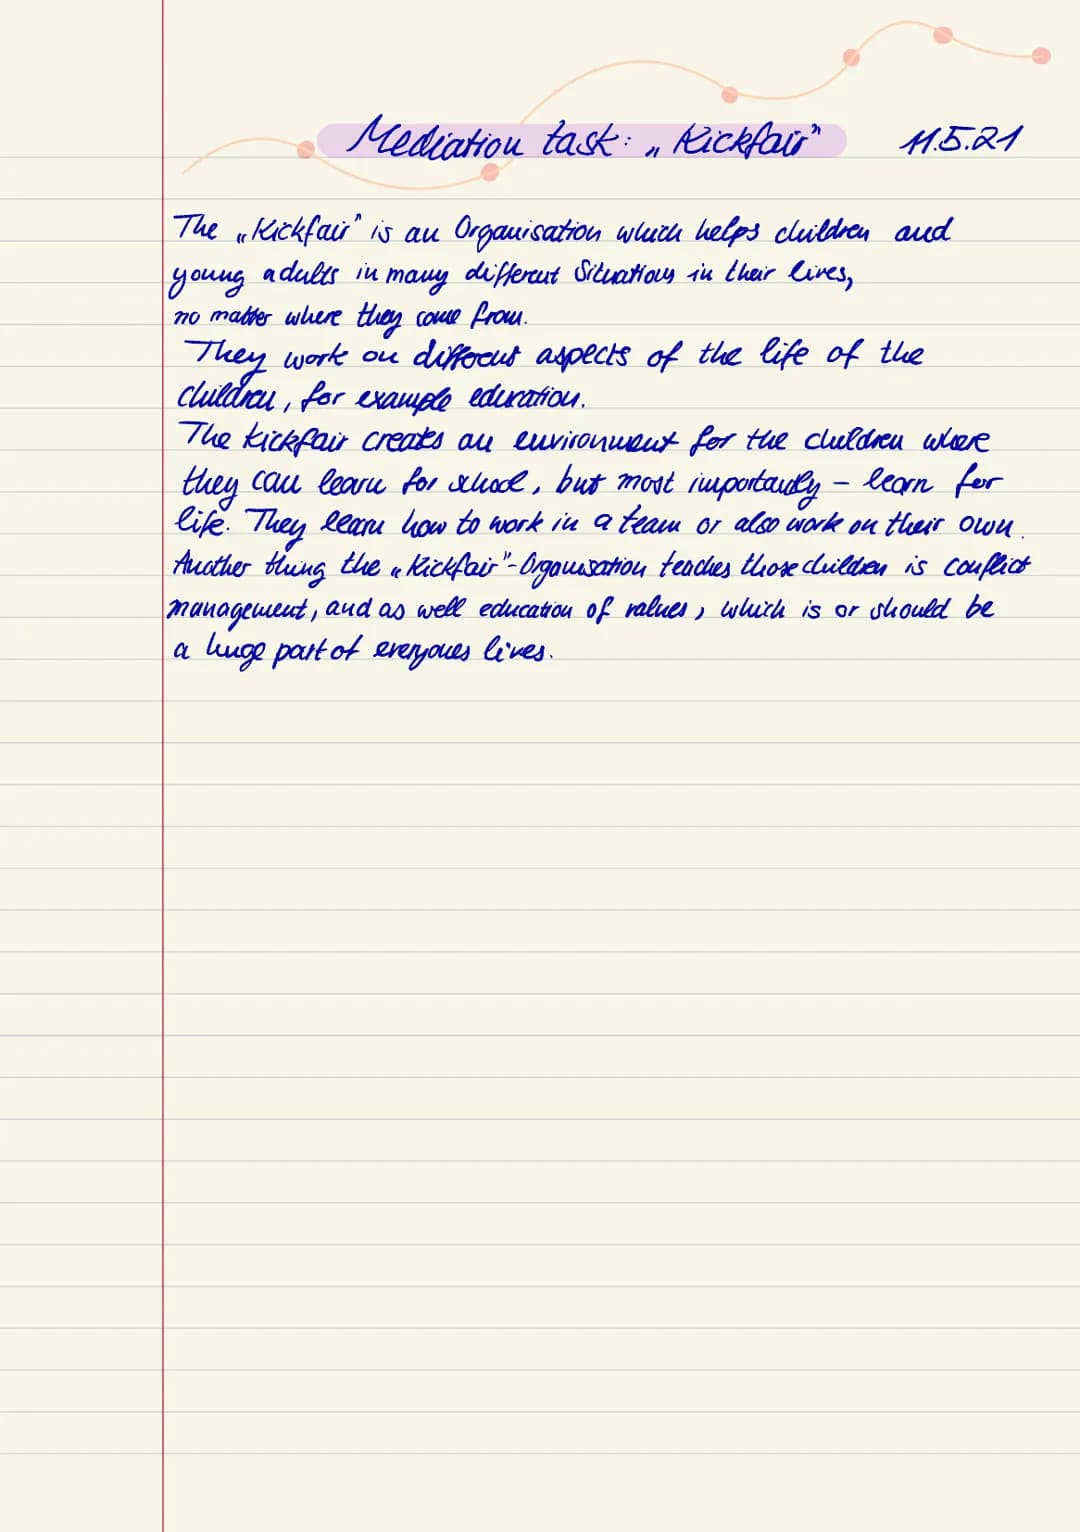 Mediation task: „Kickfair" 11.5.21
The „Kickfair" is an Organisation which helps children and
young adults in many different Situations in their lives,
no matter where they come from.
They work on different aspects of the life of the
children, for example education.
The Kickfair creates an environment for the children where
they can learn for school, but most importantly – learn for
life. They learn how to work in a team or also work on their own.
Another thing the „Kickfair"-Organisation teaches those children is conflict
management, and as well education of values, which is or should be
a huge part of everyones lives.